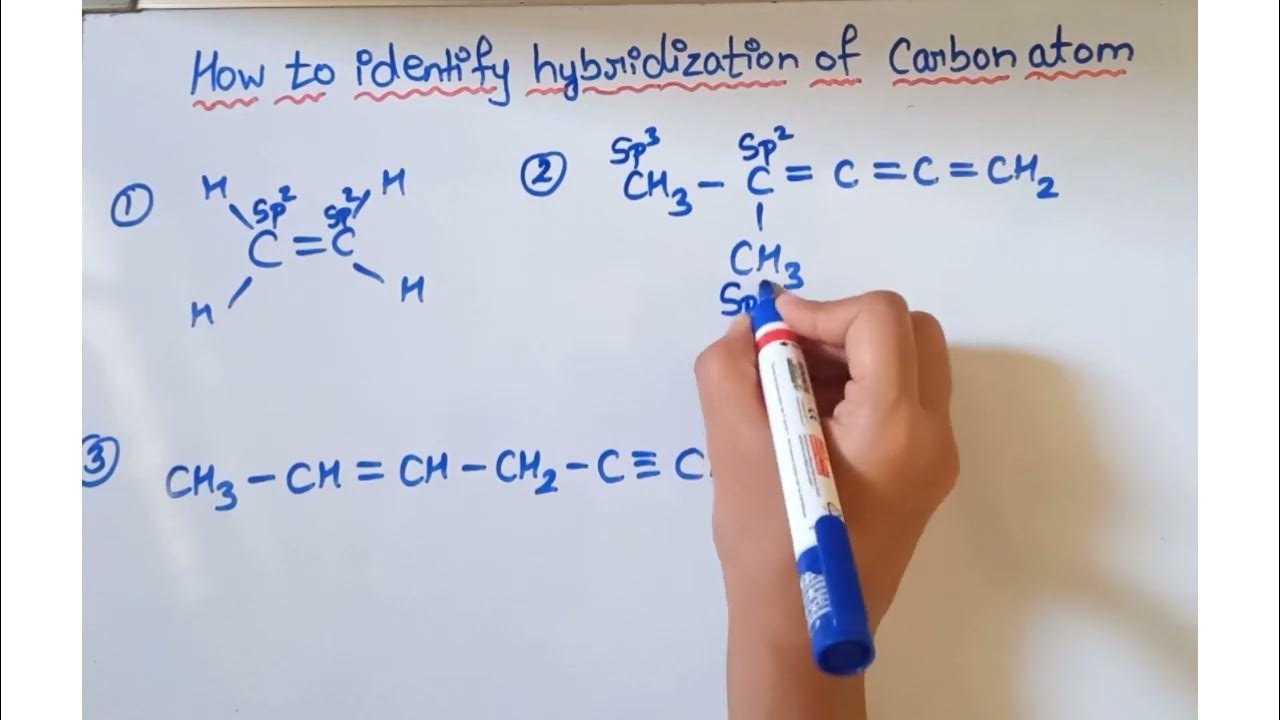 How to identify hybridization of Carbon atom
① H Sp² Sp² H
C = C
H H
② Sp³ Sp²
CH₃ – C = C = C = CH₂
|
CH₃
Sp
③ CH₃ – CH = CH – CH₂ – C ≡ C